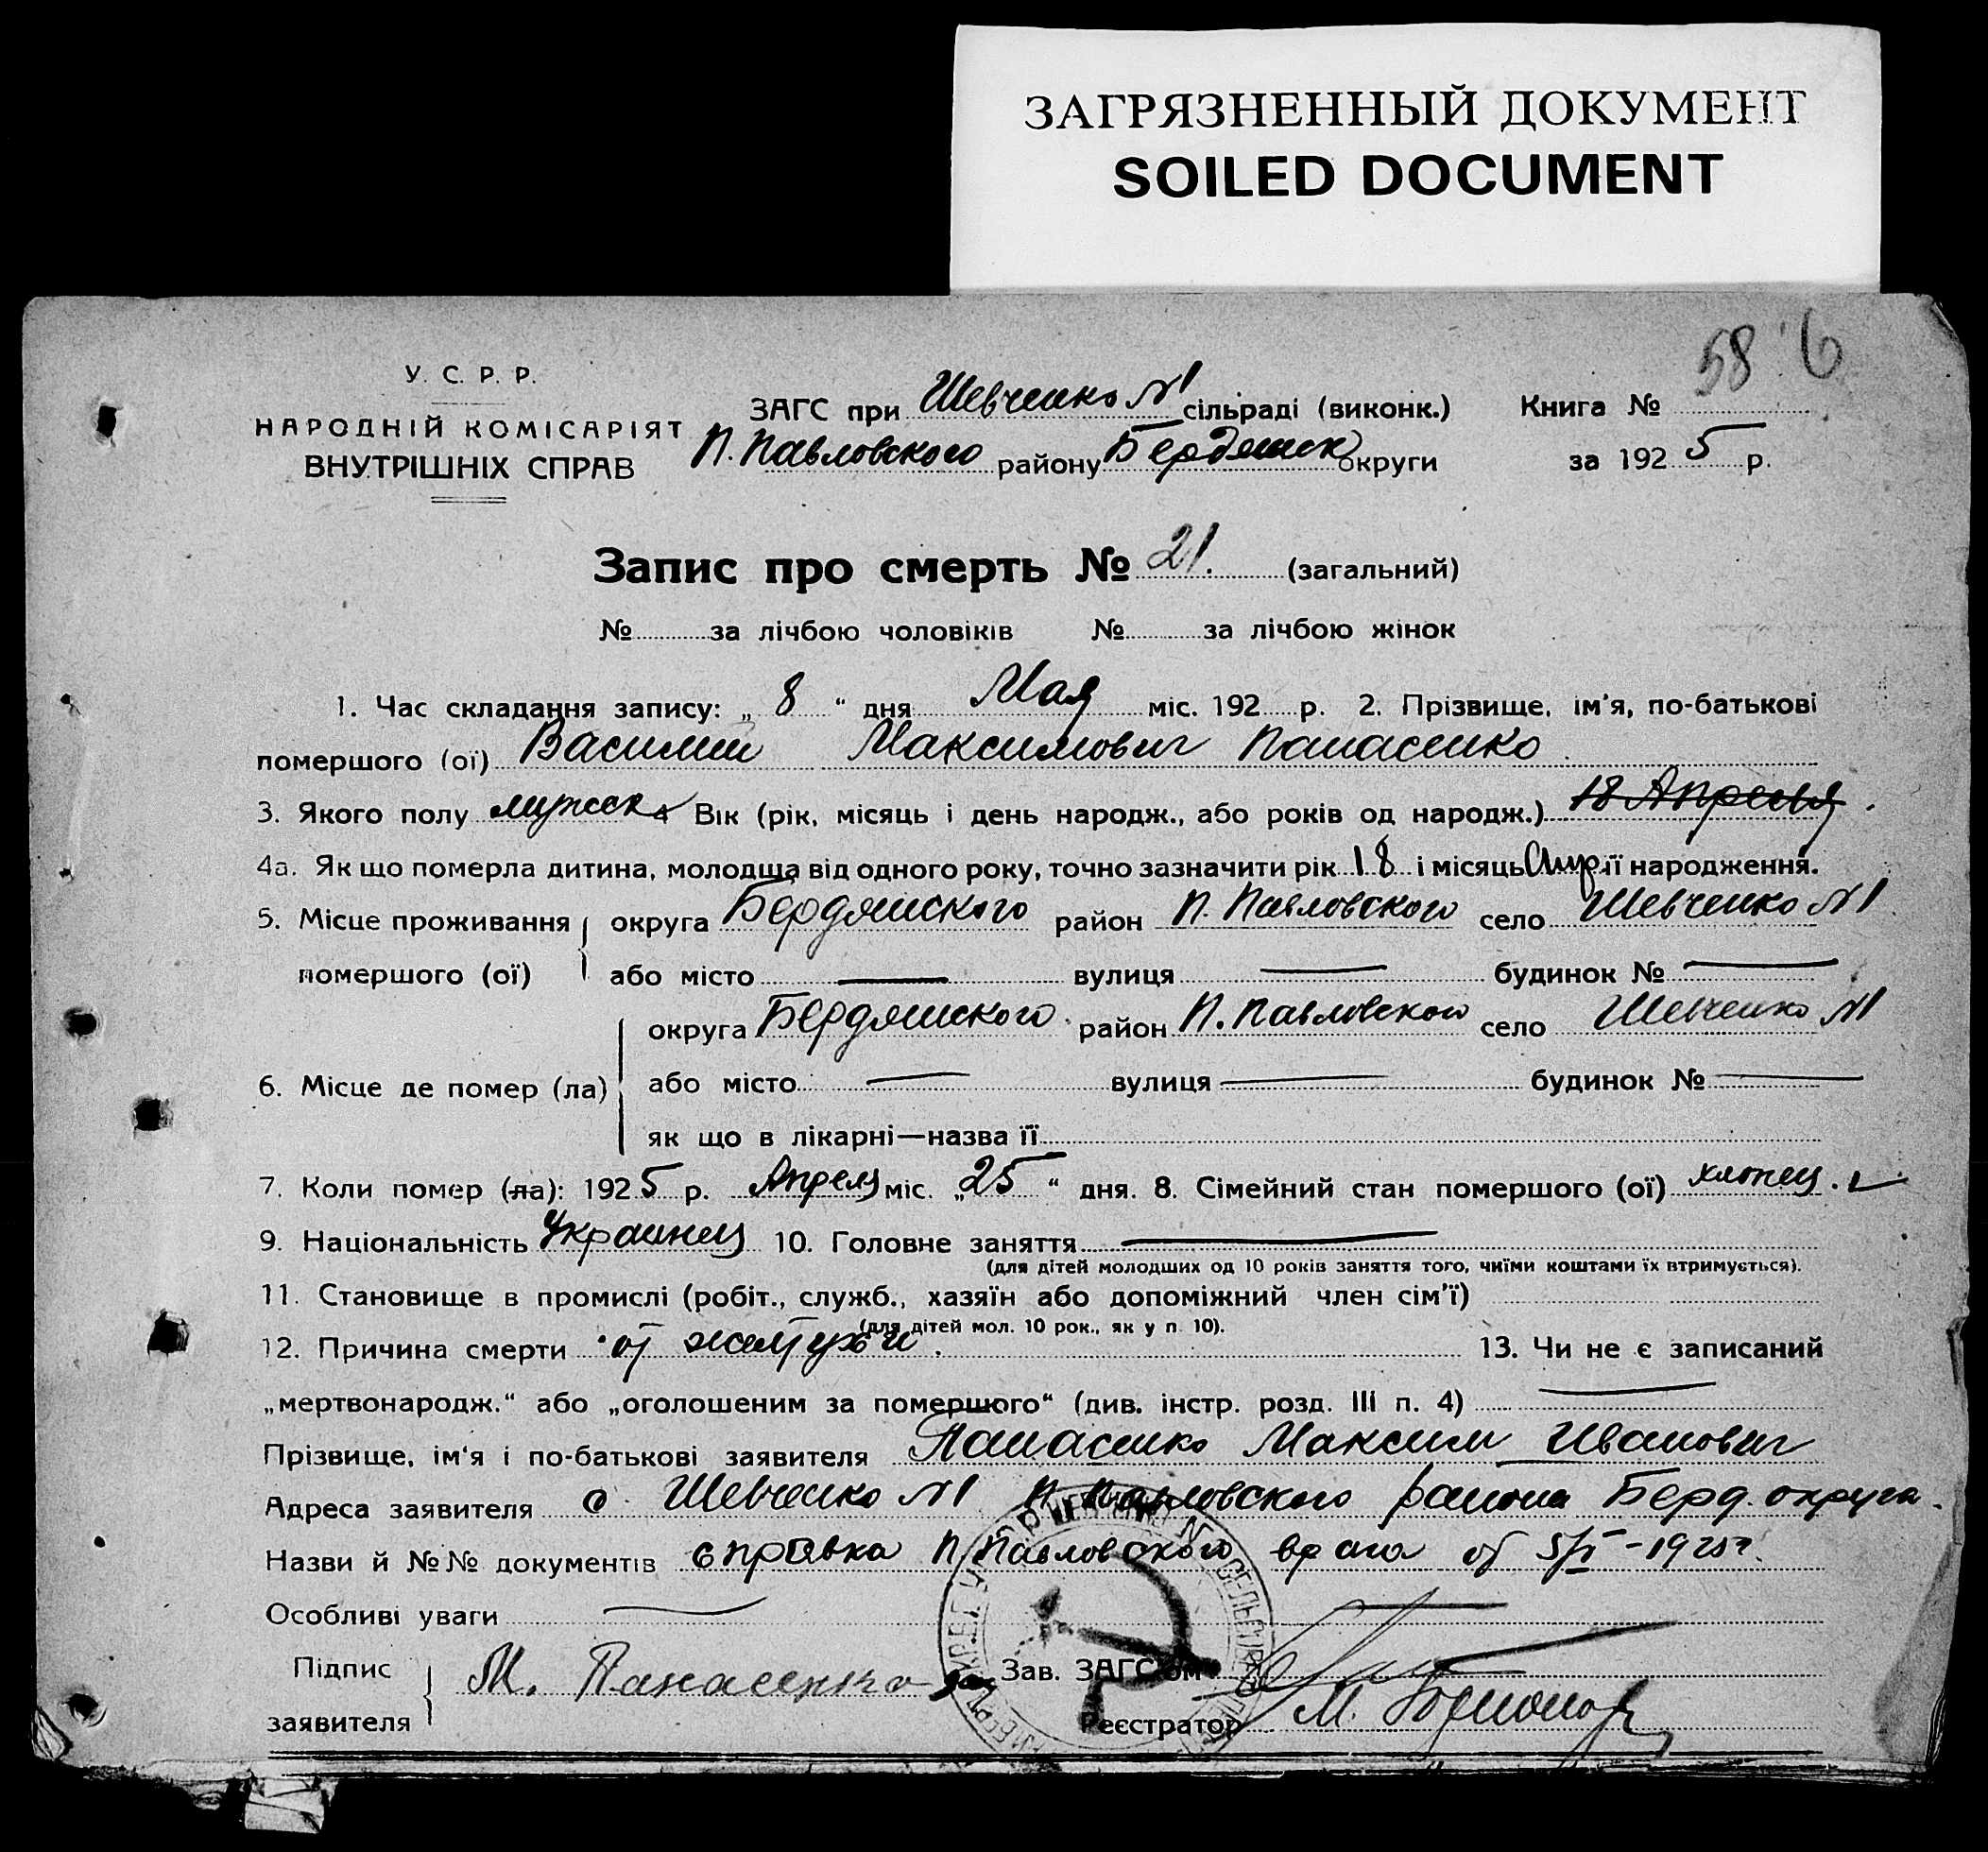 ЗАГРЯЗНЕННЫЙ ДОКУМЕНТ
SOILED DOCUMENT
58 6
У. С. Р. Р.
НАРОДНІЙ КОМІСАРІЯТ
ВНУТРІШНІХ СПРАВ
ЗАГС при Шевченко N1 сільраді (виконк.) Книга №
П. Павловского району Бердянск округи за 1925 р.
Запис про смерть № 21. (загальний)
№ за лічбою чоловіків № за лічбою жінок
1. Час складання запису: „ 8 “ дня Мая міс. 192 р. 2. Прізвище, ім'я, по-батькові
помершого (ої) Василий Максимович Панасенко
3. Якого полу мужск 4 Вік (рік, місяць і день народж., або років од народж.) 18 Апреля.
4а. Як що померла дитина, молодща від одного року, точно зазначити рік 18 і місяць Апр. її народження.
5. Місце проживання округа Бердянского район П. Павловского село Шевченко N1
помершого (ої) або місто — вулиця — будинок № —
округа Бердянского район П. Павловского село Шевченко N1
6. Місце де помер (ла) або місто — вулиця — будинок № —
як що в лікарні—назва її
7. Коли помер (ла): 1925 р. Апреля міс. „ 25 “ дня. 8. Сімейний стан помершого (ої) хлопец.
9. Національність Украинец 10. Головне заняття —
(для дітей молодших од 10 років заняття того, чиїми коштами їх втримується).
11. Становище в промислі (робіт., служб., хазяїн або допоміжний член сім'ї)
(для дітей мол. 10 рок., як у п. 10).
12. Причина смерти от желтухи. 13. Чи не є записаний
„мертвонародж.“ або „оголошеним за помершого“ (див. інстр. розд. III п. 4) —
Прізвище, ім'я і по-батькові заявителя Панасенко Максим Иванович
Адреса заявителя с. Шевченко N1 П. Павловского района Берд. округа.
Назви й №№ документів справка П. Павловского врача от 5/V-1925г.
Особливі уваги —
Підпис М. Панасенко Зав. ЗАГС'ом
заявителя Реєстратор М.